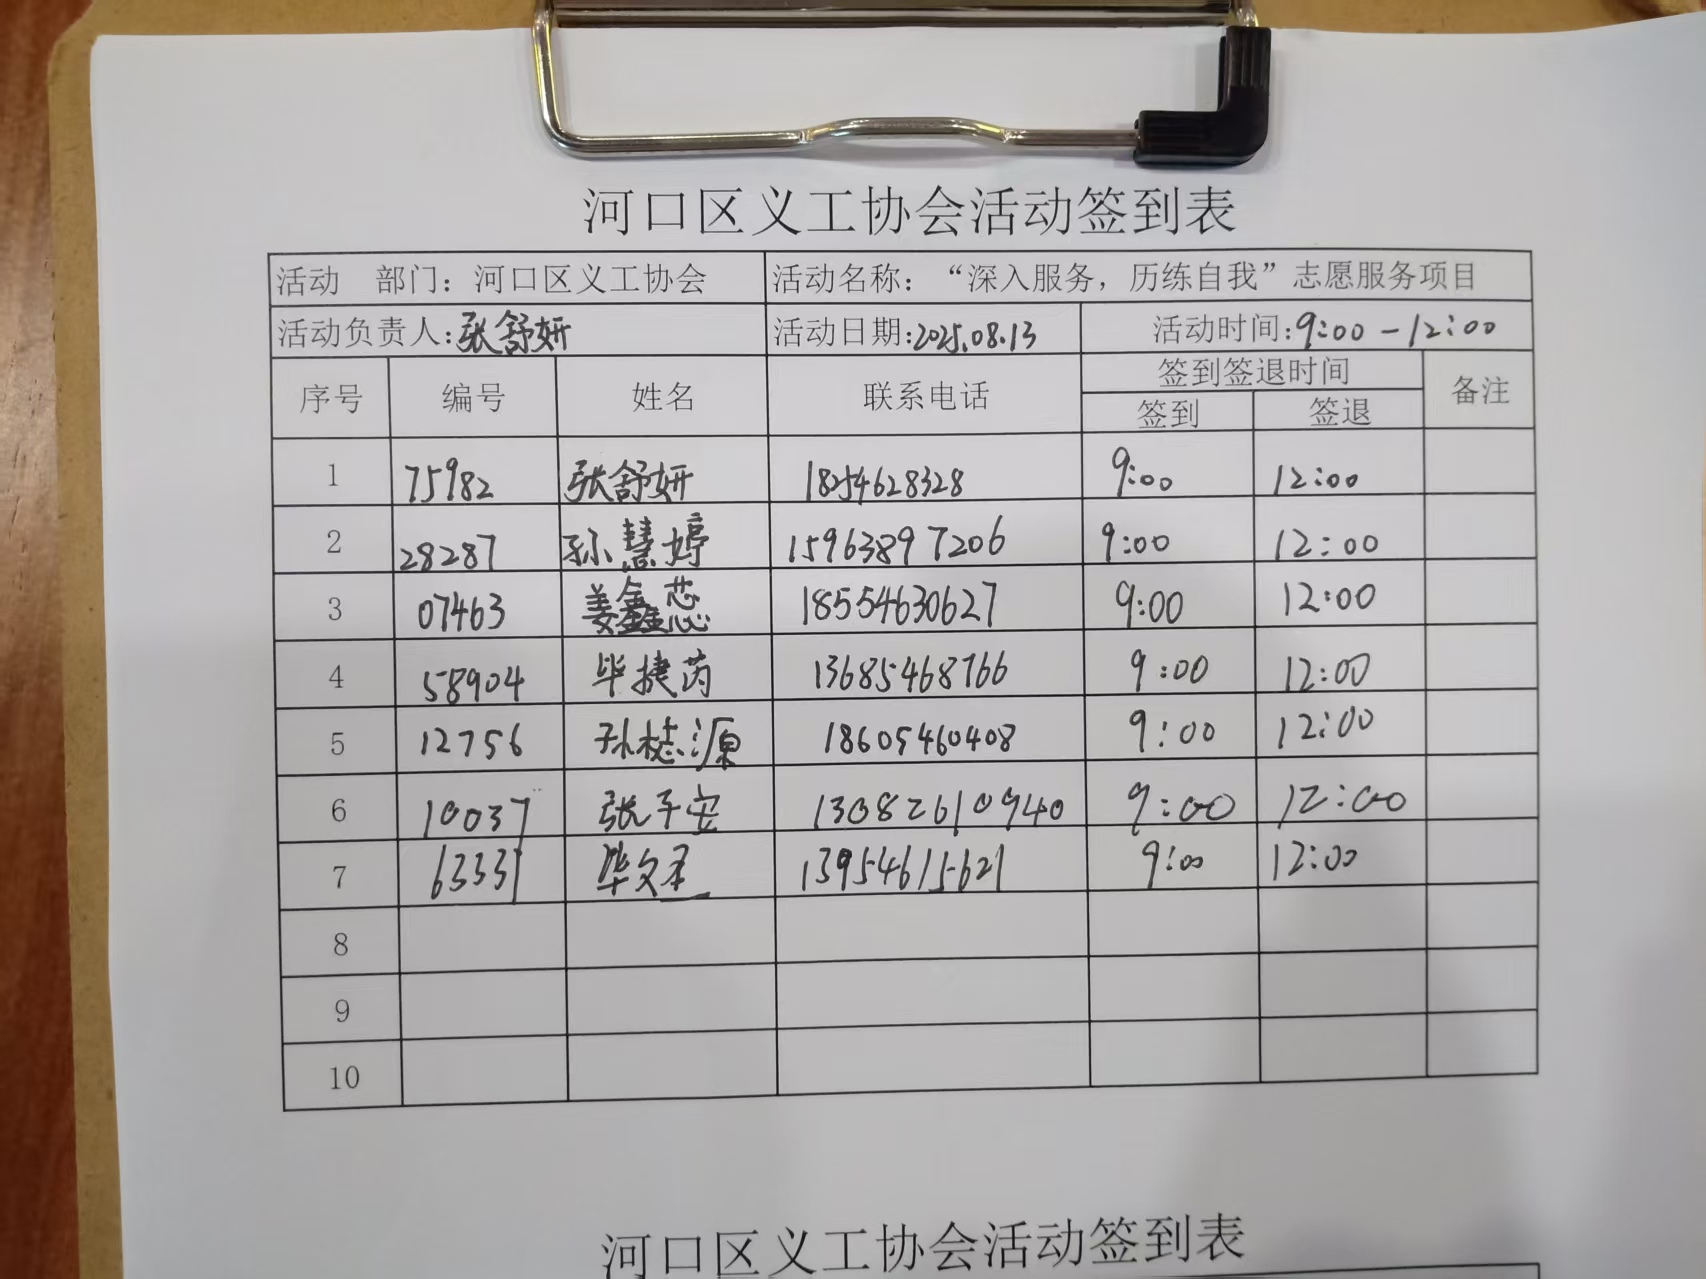 河口区义工协会活动签到表
活动 部门：河口区义工协会 活动名称：“深入服务，历练自我”志愿服务项目
活动负责人：张舒妍 活动日期：2025.08.13 活动时间：9:00-12:00
序号 编号 姓名 联系电话 签到签退时间 备注
签到 签退
1 75982 张舒妍 18254628328 9:00 12:00
2 28287 孙慧婷 15963897206 9:00 12:00
3 07463 姜鑫蕊 18554630627 9:00 12:00
4 58904 毕捷芮 13685468766 9:00 12:00
5 12756 孙梽源 18605460408 9:00 12:00
6 10037 张子安 13082610940 9:00 12:00
7 63331 毕文圣 13954615621 9:00 12:00
8
9
10
河口区义工协会活动签到表